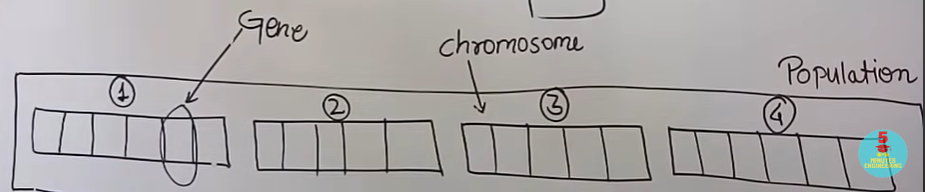 Gene
chromosome
Population
1
2
3
4
5
MINUTES
ENGINEERING